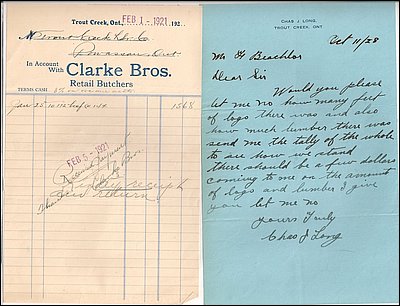 Trout Creek, Ont., FEB 1 - 1921 192
M Trout Creek Lbr. Co.
Powassan, Ont.
In Account
With Clarke Bros.
Retail Butchers
TERMS CASH
Jan 25 To 112 beef @ 14 1568
FEB 5 - 1921
Clarke Bros.
Kindly receipt
and return
CHAS J LONG,
TROUT CREEK, ONT
Oct 11/28
Mr H Beachlor
Dear Sir
Would you please
let me no how many feet
of logs there was and also
how much lumber there was
send me the tally of the whole
to see how we stand
there should be a few dollars
coming to me on the amount
of logs and lumber I give
you let me no
yours Truly
Chas J Long